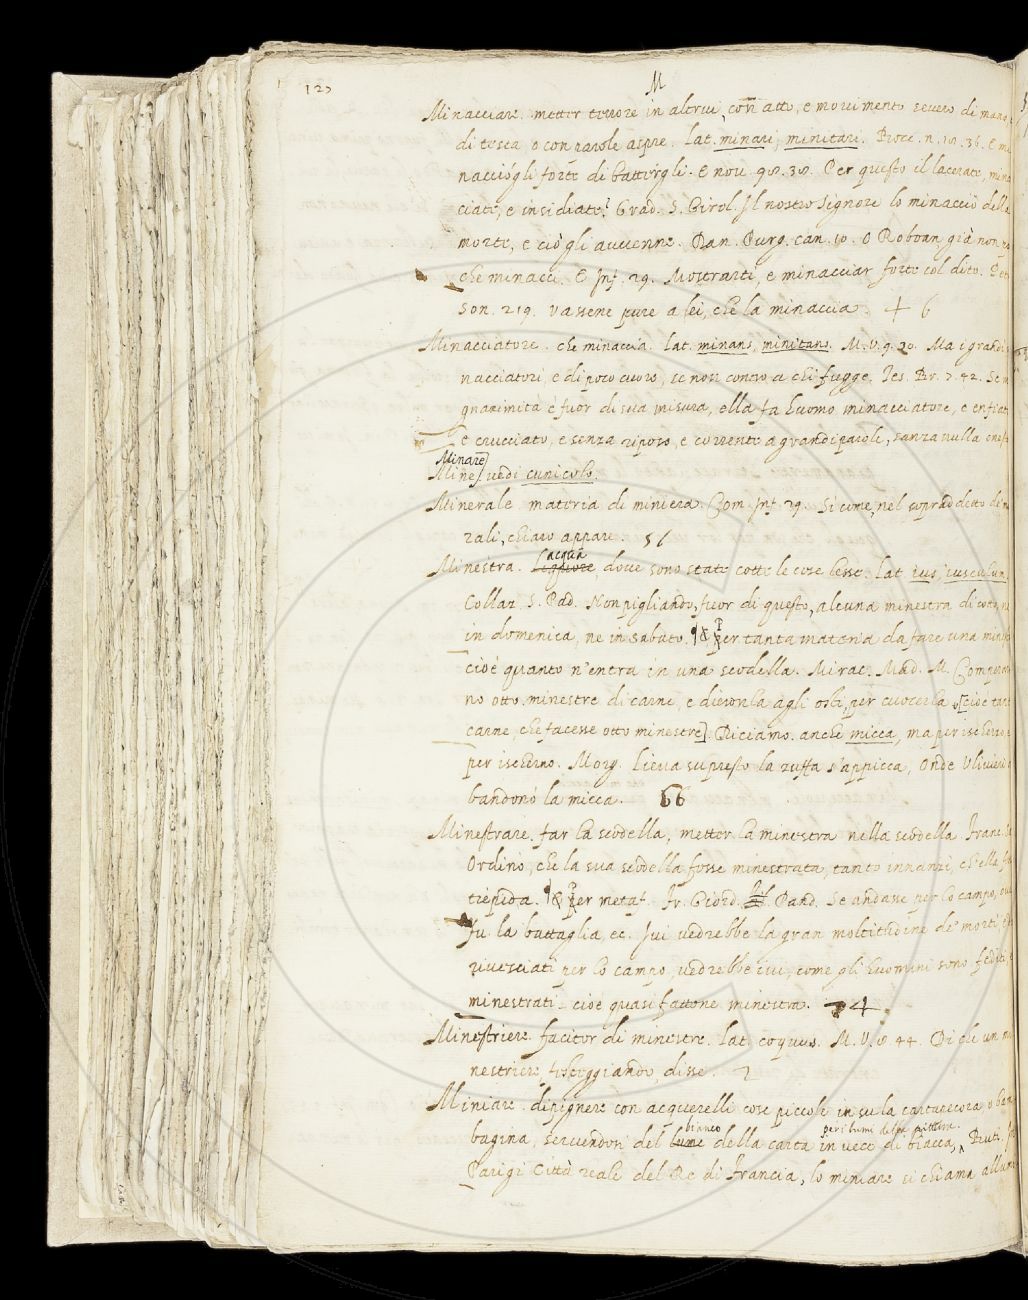 127
M
Minacciare. metter terrore in altrui, con atto, e mouimento seuero di mano,
di testa o con parole aspre. Lat. minari, minitari. Bocc. n. 18. 36. E mi
nacciógli forte di battergli. E nou. 98. 38. Per questo il lacerate, mina
ciate, e insidiate? Grad. S. Girol. Il nostro Signore lo minacciò della
morte, e ciò gli auuenne. Dan. Purg. can. 10. O Roboan, già non
che minacci. E Inf. 29. Mostrarti, e minacciar forte col dito. Pet
son. 219. Vassene pure a lei, che la minaccia. 6
Minacciatore. che minaccia. Lat. minans, minitans. M. V. 9. 30. Ma i grandi
nacciatori, e di poco cuore, se non contro a chi fugge. Tes. Br. 7. 42. Se m
gnanimita è fuor di sua misura, ella fa huomo minacciatore, e enfiat
e crucciato, e senza riposo, e corrente a grandi parole, sanza nulla
Minare
Mine] vedi cunicolo.
Minerale. materia di miniera. Com. Inf. 29. Si come, nel sopraddetto di
rali, chiaro appare. 51
acqua
Minestra. Liquore, doue sono state cotte le cose lesse. Lat. ius, iusculum
Collaz. S. Pad. Non pigliando, fuor di questo, alcuna minestra di cotto, ne
in domenica, ne in sabato. & Per tanta materia da fare una mines
cioè quanto n'entra in una scodella. Mirac. Mad. M. Comperaro
no otto minestre di carne, e dieronla agli osti, per cuocerla [cioè tant
carne, che facesse otto minestre]. Diciamo anche micca, ma per ischerzo,
per ischerno. Morg. Lieua su presto la zuffa s'appicca, Onde Vliuieri
bandonò la micca. 66
Minestrare. far la scodella, metter la minestra nella scodella. Franc.
Ordinò, che la sua scodella fosse minestrata, tanto innanzi, ch'ella
tiepida. & Per metaf. Fr. Giord. Pand. Se andasse per lo campo,
fu la battaglia, ec. Iui vedrebbe la gran moltitudine de' morti
riuesciati per lo campo, vedrebbe iui, come gli huomini sono fediti,
minestrati - cioè quasi fattone minestra. 74
Minestriere. facitor di minestre. Lat. coquus. M. V. 8. 44. Di che un
nestriere, fesceggiando, disse. 2
Miniare. dipignere con acquerelli cose piccole in su la cartapecora o bam
bianco per i lumi della pittura.
bagina, seruendosi del lume della carta in uece di biacca, Buti.
Parigi Città reale del Re di Francia, lo miniare si chiama allum